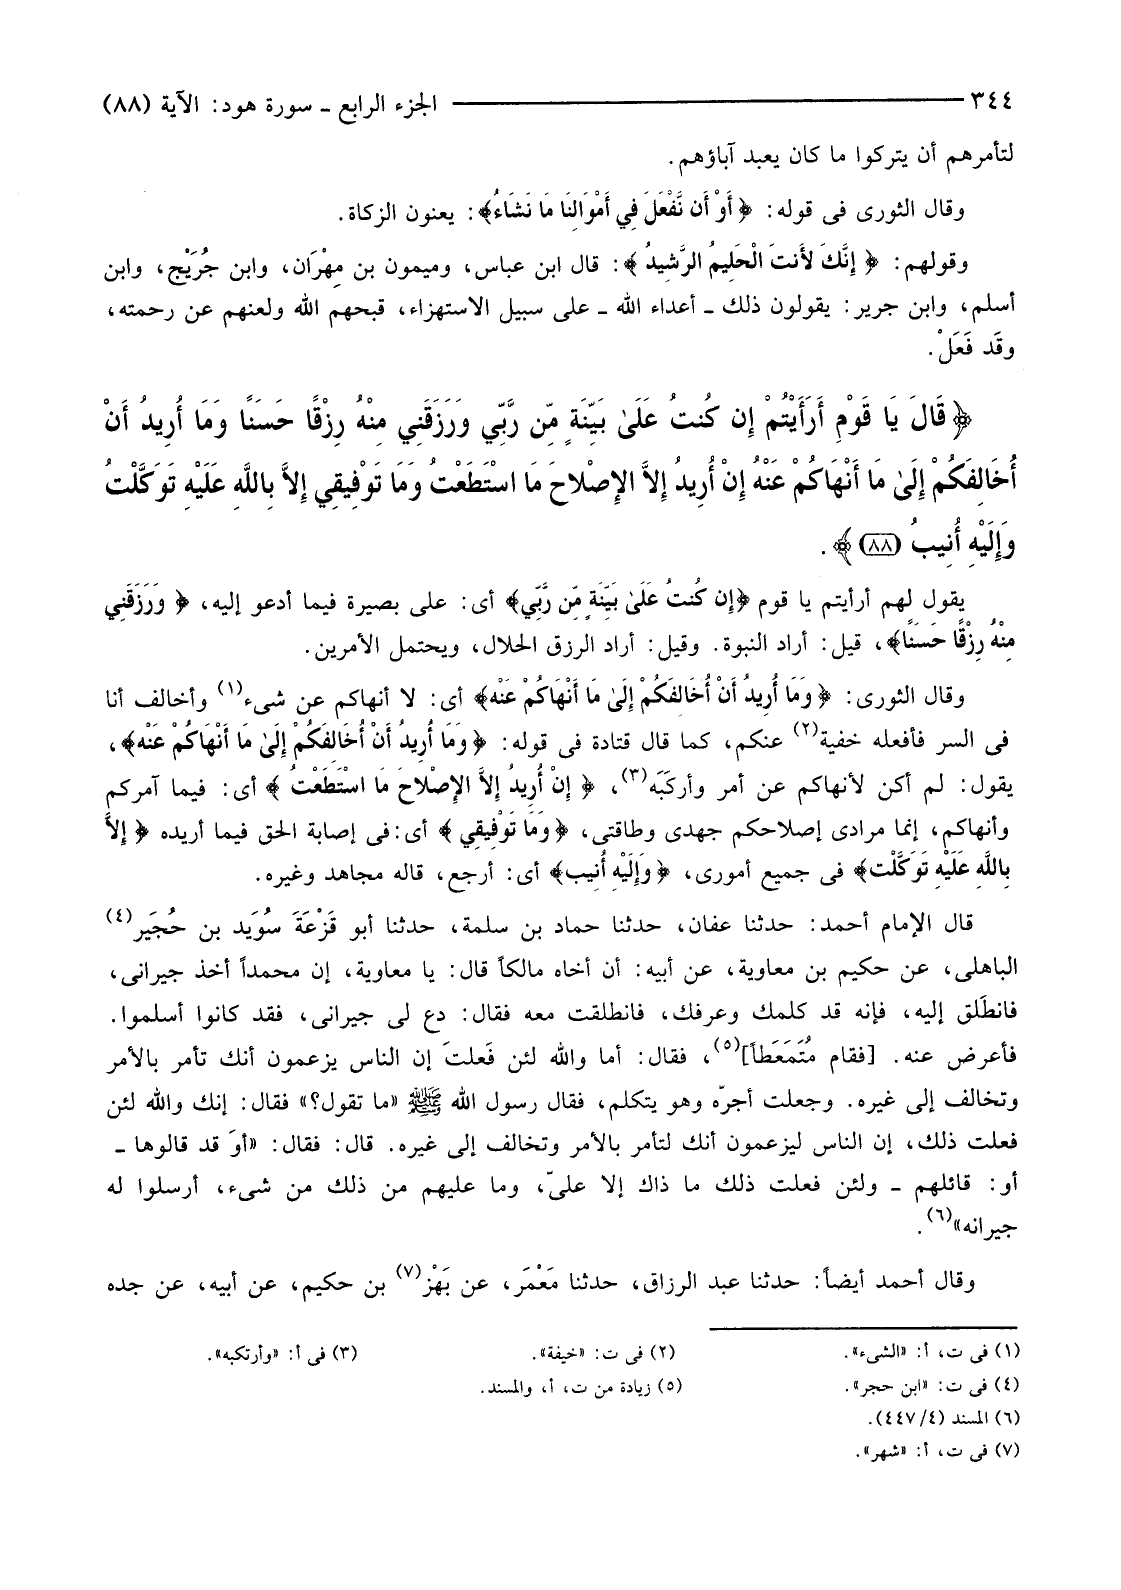 ٣٤٤ الجزء الرابع ـ سورة هود: الآية (٨٨)
لتأمرهم أن يتركوا ما كان يعبد آباؤهم.
وقال الثورى فى قوله: ﴿ أَوْ أَن نَّفْعَلَ فِي أَمْوَالِنَا مَا نَشَاءُ﴾: يعنون الزكاة.
وقولهم: ﴿ إِنَّكَ لأَنتَ الْحَلِيمُ الرَّشِيدُ ﴾: قال ابن عباس، وميمون بن مِهْرَان، وابن جُرَيْج، وابن
أسلم، وابن جرير: يقولون ذلك ـ أعداء الله ـ على سبيل الاستهزاء، قبحهم الله ولعنهم عن رحمته،
وقَد فَعَلْ.
﴿ قَالَ يَا قَوْمِ أَرَأَيْتُمْ إِن كُنتُ عَلَىٰ بَيِّنَةٍ مِّن رَّبِّي وَرَزَقَنِي مِنْهُ رِزْقًا حَسَنًا وَمَا أُرِيدُ أَنْ
أُخَالِفَكُمْ إِلَىٰ مَا أَنْهَاكُمْ عَنْهُ إِنْ أُرِيدُ إِلاَّ الإِصْلاحَ مَا اسْتَطَعْتُ وَمَا تَوْفِيقِي إِلاَّ بِاللَّهِ عَلَيْهِ تَوَكَّلْتُ
وَإِلَيْهِ أُنِيبُ (٨٨) ﴾ .
يقول لهم أرأيتم يا قوم ﴿إِن كُنتُ عَلَىٰ بَيِّنَةٍ مِّن رَّبِّي﴾ أى: على بصيرة فيما أدعو إليه، ﴿ وَرَزَقَنِي
مِنْهُ رِزْقًا حَسَنًا﴾، قيل: أراد النبوة. وقيل: أراد الرزق الحلال، ويحتمل الأمرين.
وقال الثورى: ﴿ وَمَا أُرِيدُ أَنْ أُخَالِفَكُمْ إِلَىٰ مَا أَنْهَاكُمْ عَنْه﴾ أى: لا أنهاكم عن شىء(١) وأخالف أنا
فى السر فأفعله خفية(٢) عنكم، كما قال قتادة فى قوله: ﴿ وَمَا أُرِيدُ أَنْ أُخَالِفَكُمْ إِلَىٰ مَا أَنْهَاكُمْ عَنْه﴾،
يقول: لم أكن لأنهاكم عن أمر وأركَبَه(٣)، ﴿ إِنْ أُرِيدُ إِلاَّ الإِصْلاحَ مَا اسْتَطَعْتُ ﴾ أى: فيما آمركم
وأنهاكم، إنما مرادى إصلاحكم جهدى وطاقتى، ﴿ وَمَا تَوْفِيقِي ﴾ أى: فى إصابة الحق فيما أريده ﴿ إِلاَّ
بِاللَّهِ عَلَيْهِ تَوَكَّلْت﴾ فى جميع أمورى، ﴿وَإِلَيْهِ أُنِيب﴾ أى: أرجع، قاله مجاهد وغيره.
قال الإمام أحمد: حدثنا عفان، حدثنا حماد بن سلمة، حدثنا أبو قَزْعَةَ سُوَيد بن حُجَير(٤)
الباهلى، عن حكيم بن معاوية، عن أبيه: أن أخاه مالكاً قال: يا معاوية، إن محمداً أخذ جيرانى،
فانطَلق إليه، فإنه قد كلمك وعرفك، فانطلقت معه فقال: دع لى جيرانى، فقد كانوا أسلموا.
فأعرض عنه. [فقام مُتَمَعطاً](٥)، فقال: أما والله لئن فَعلتَ إن الناس يزعمون أنك تأمر بالأمر
وتخالف إلى غيره. وجعلت أجرّه وهو يتكلم، فقال رسول الله ﷺ «ما تقول؟» فقال: إنك والله لئن
فعلت ذلك، إن الناس ليزعمون أنك لتأمر بالأمر وتخالف إلى غيره. قال: فقال: «أوَ قد قالوها ـ
أو: قائلهم ـ ولئن فعلت ذلك ما ذاك إلا علىّ، وما عليهم من ذلك من شىء، أرسلوا له
جيرانه»(٦).
وقال أحمد أيضاً: حدثنا عبد الرزاق، حدثنا مَعْمَر، عن بَهْز(٧) بن حكيم، عن أبيه، عن جده
(١) فى ت، أ: «الشىء». (٢) فى ت: «خيفة». (٣) فى أ: «وأرتكبه».
(٤) فى ت: «ابن حجر». (٥) زيادة من ت، أ، والمسند.
(٦) المسند (٤/٤٤٧).
(٧) فى ت، أ: «شهر».